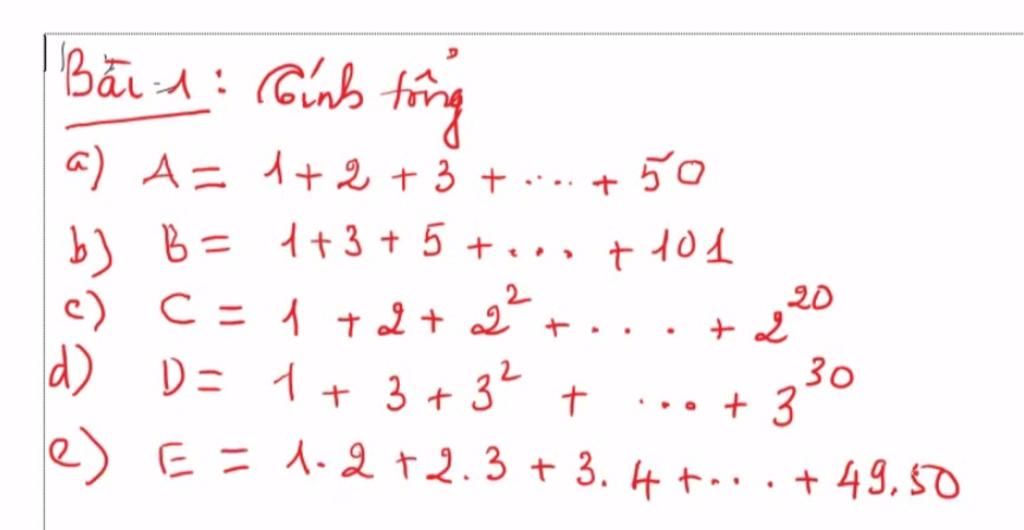 Bài 1 : Tính tổng
a) A = 1 + 2 + 3 + .... + 50
b) B = 1 + 3 + 5 + ... + 101
c) C = 1 + 2 + 2² + .... + 2²⁰
d) D = 1 + 3 + 3² + ... + 3³⁰
e) E = 1.2 + 2.3 + 3.4 + ... + 49.50